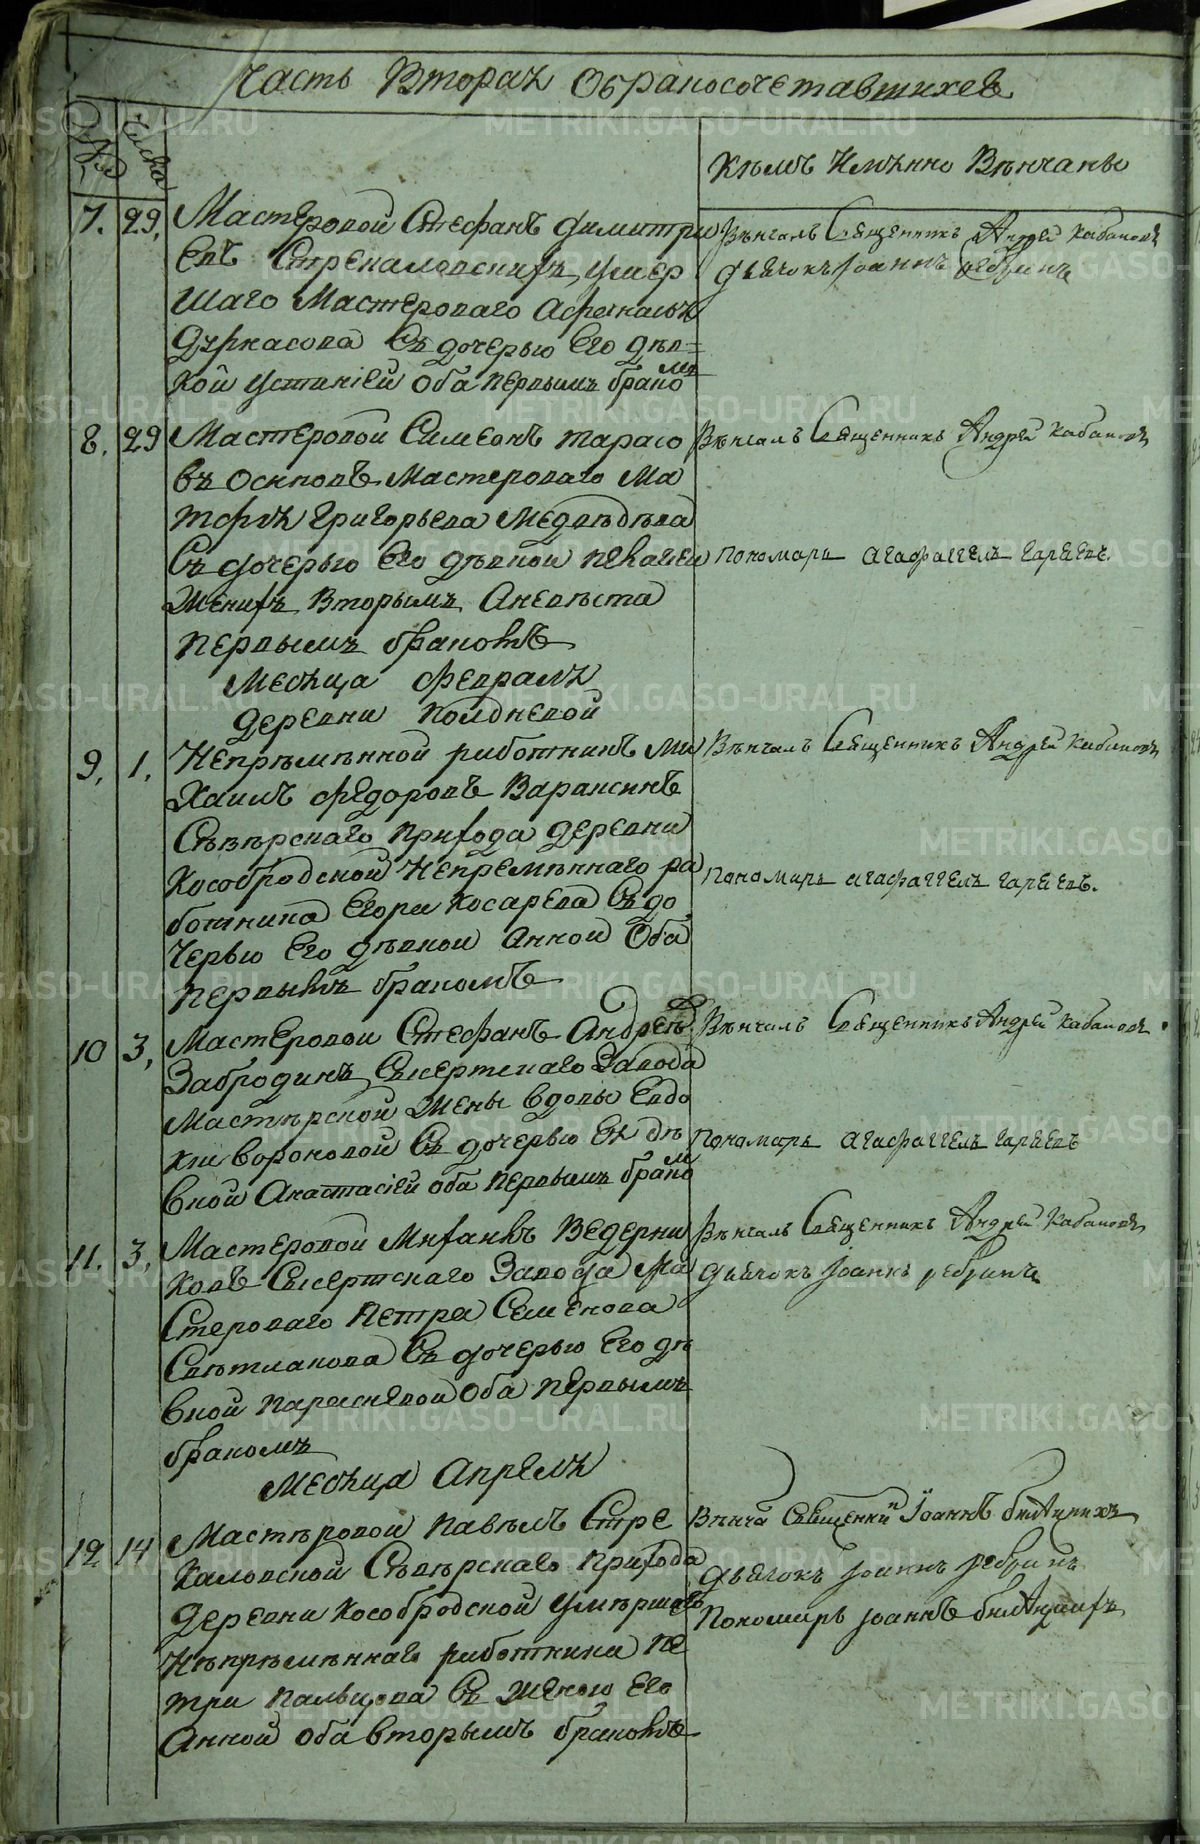 Часть Вторая Обраносочетавшихся
Числа
Кѣмъ Имѣнно Вѣнчаны
7. 29, Мастеровой Стефанъ Димитри
евъ Стрекаловскихъ, умер
шаго Мастероваго Афанасья
Дуркасова Съ дочерью Его дѣв=
кой Устиніей Оба первымъ бракомъ
Вѣнчалъ Священникъ Андрей Кабаковъ
Дьячокъ Іоаннъ Ребринъ
8. 29 Мастеровой Симеонъ Тарасо
въ Осиповъ Мастероваго Ма
тфѣя Григорьева Медвѣдева
Съ дочерью Его дѣвкой Пелагеи
Женихъ Вторымъ, Аневѣста
первымъ бракомъ
Вѣнчалъ Священникъ Андрей Кабаковъ
Пономарь Агафаггелъ Гаряевъ.
Месяца Февраля
Деревни Колдневой
9, 1, Непрѣмѣнной работникъ Ми
хаилъ Федоровъ Вараксинъ
Сѣвѣрскаго Прихода Деревни
Кособродской Непремѣннаго ра
ботника Егора Косарева Съ до
черью Его дѣвкой Анной Оба
первымъ бракомъ
Вѣнчалъ Священникъ Андрей Кабаковъ
Пономарь Агафаггелъ Гаряевъ.
10 3, Мастеровой Стефанъ Андреевъ
Забродинъ, Сысертскаго Завода
Мастѣрской Жены Вдовы Евдо
кіи Вороновой Съ дочерью Ея дѣ
вкой Анастасіей оба первымъ бракомъ
Вѣнчалъ Священникъ Андрей Кабаковъ
Пономарь Агафаггелъ Гаряевъ
11. 3, Мастеровой Михаилъ Ведерни
ковъ Сысертскаго Завода Ма
стероваго Петра Семенова
Свѣтлакова Съ дочерью Его дѣ
вкой Параскевой Оба первымъ
бракомъ
Вѣнчалъ Священникъ Андрей Кабаковъ
Дьячокъ Іоаннъ Ребринъ
Месяца Апреля
12 14 Мастѣровой Павѣлъ Стре
каловской Сѣвѣрскаго Прихода
Деревни Кособродской умѣршаго
Нѣпрѣмѣннаго работника Пе
тра Пальцова Съ Женою Его
Анной Оба вторымъ бракомъ
Вѣнча Священни Іоаннъ
Дьячокъ Іоаннъ Ребринъ
Пономарь Іоаннъ